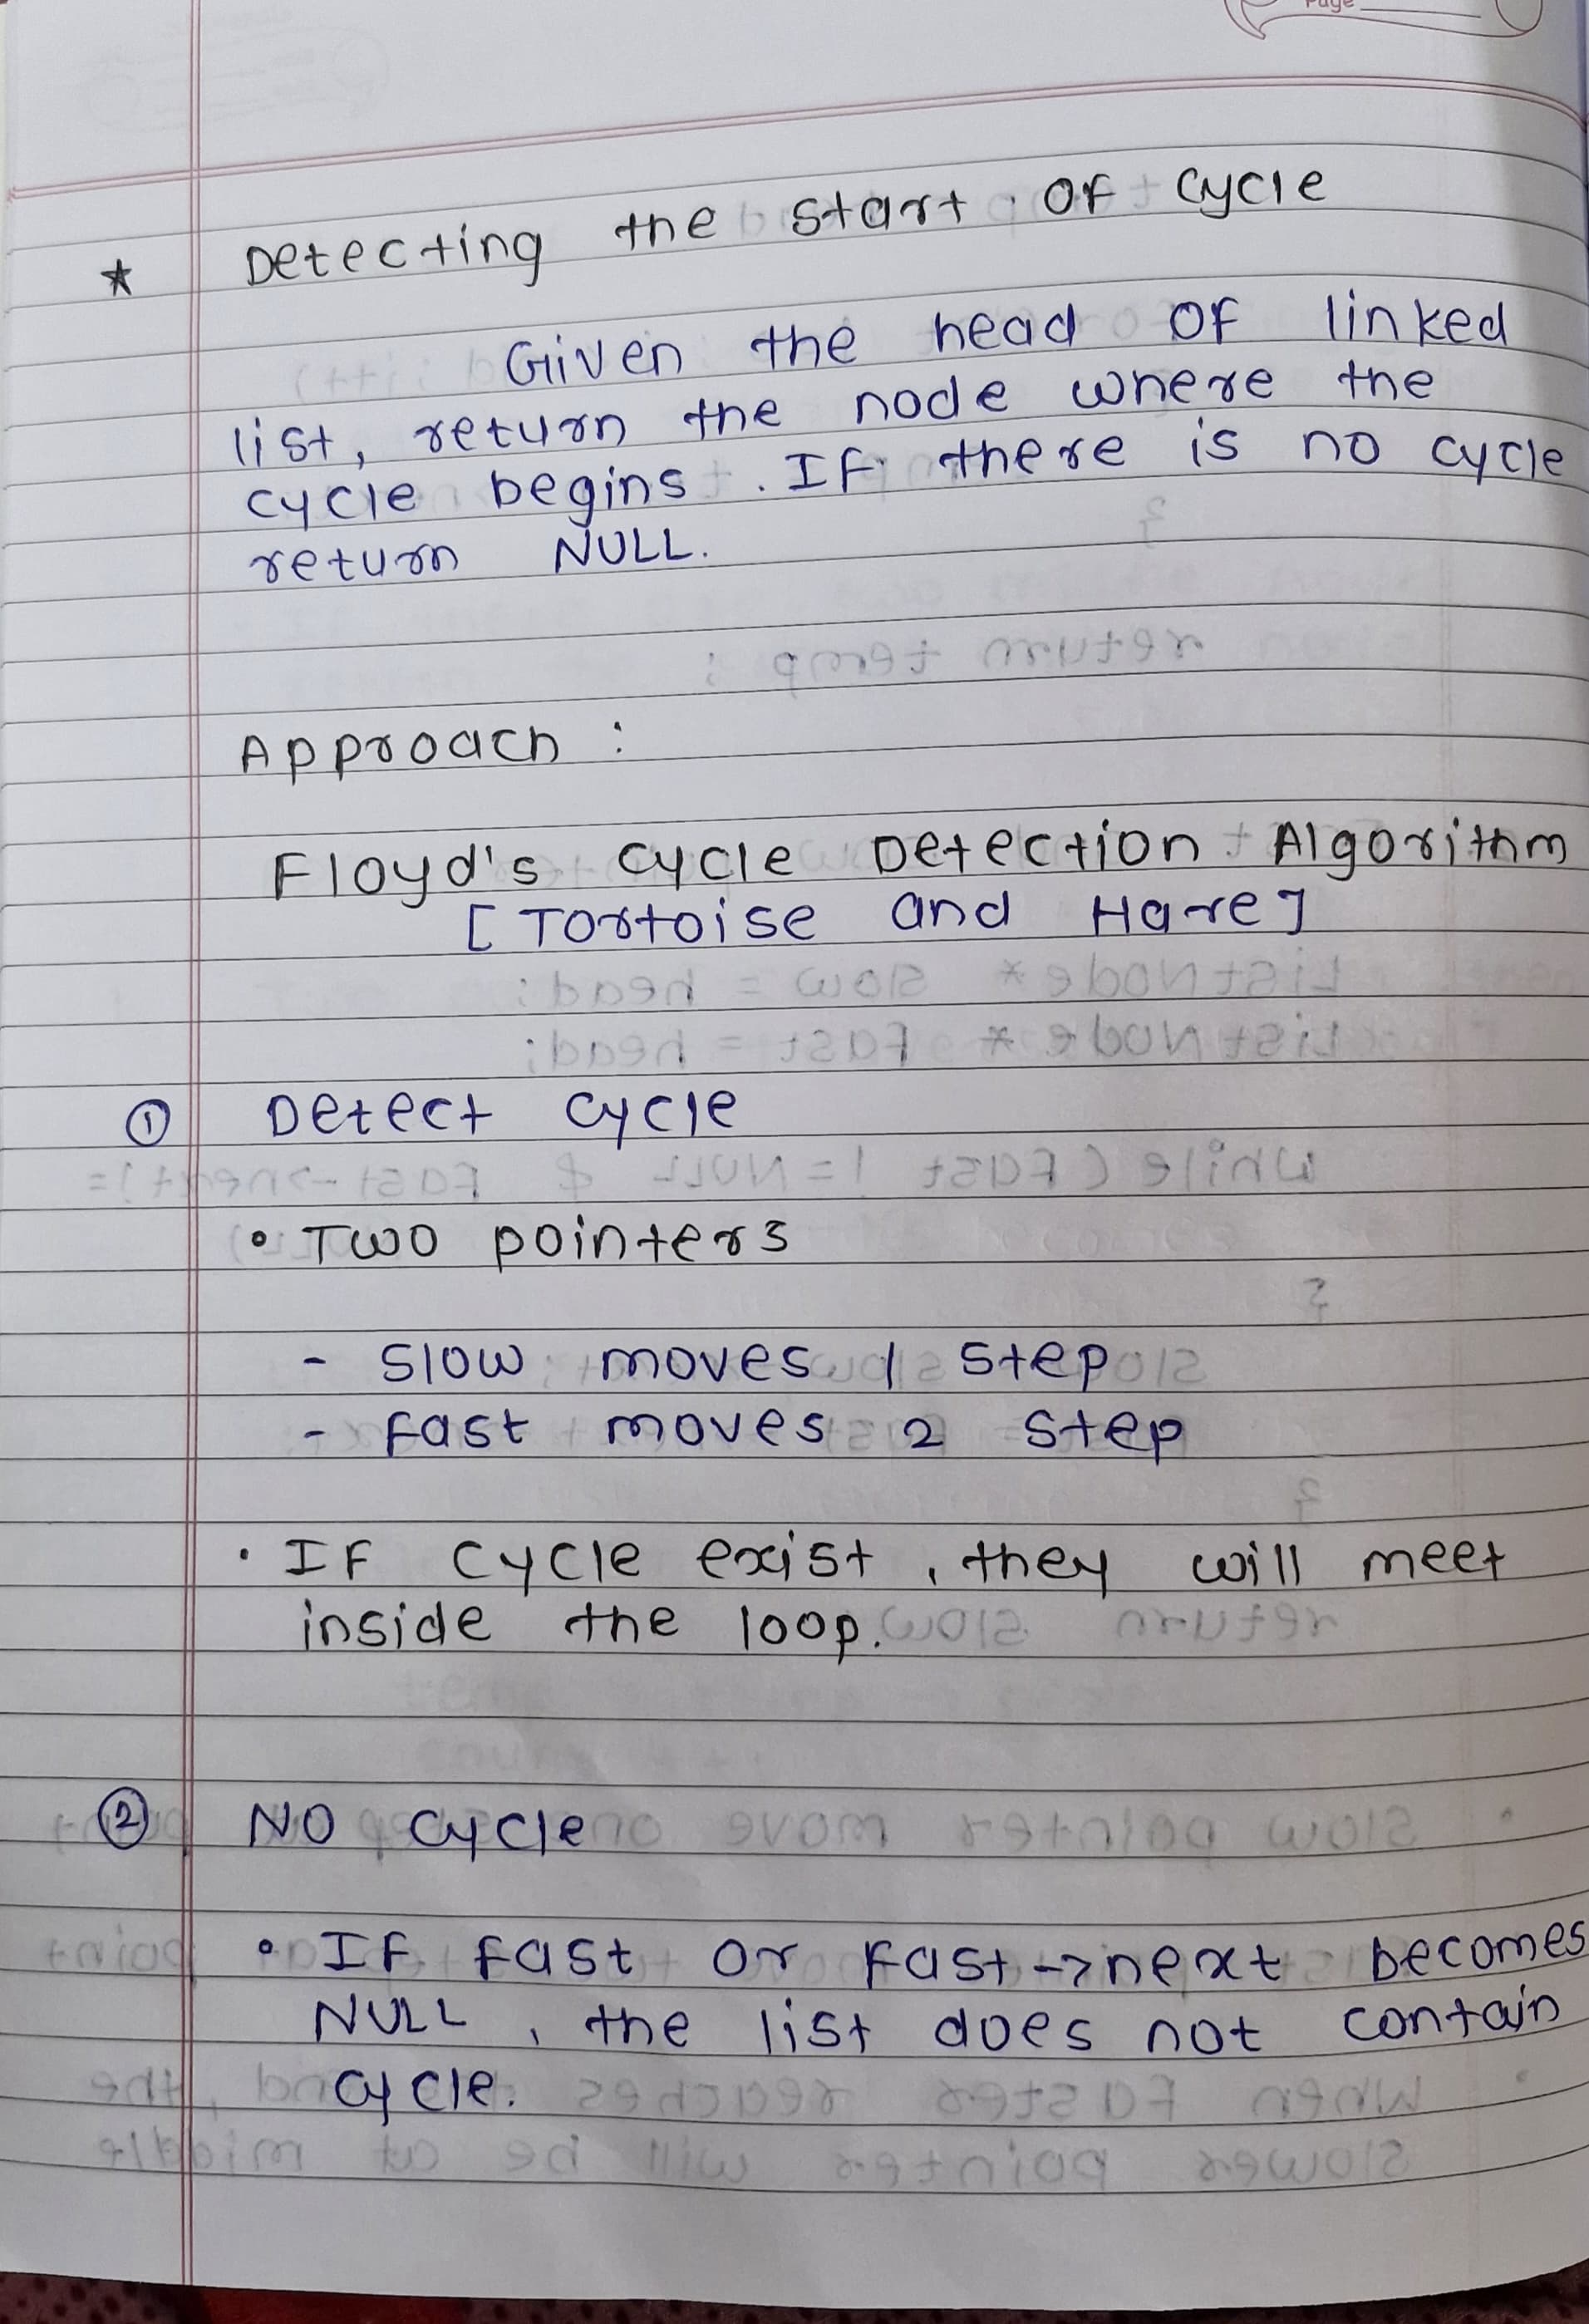 Page
★ Detecting the start of cycle
Given the head of linked
list, return the node where the
cycle begins. If there is no cycle
return NULL.
Approach :
Floyd's cycle Detection Algorithm
[Tortoise and Hare]
① Detect cycle
• Two pointers
- slow moves 1 step
- fast moves 2 step
• If cycle exist, they will meet
inside the loop.
② No cycle
• If fast or fast->next becomes
NULL, the list does not contain
cycle.